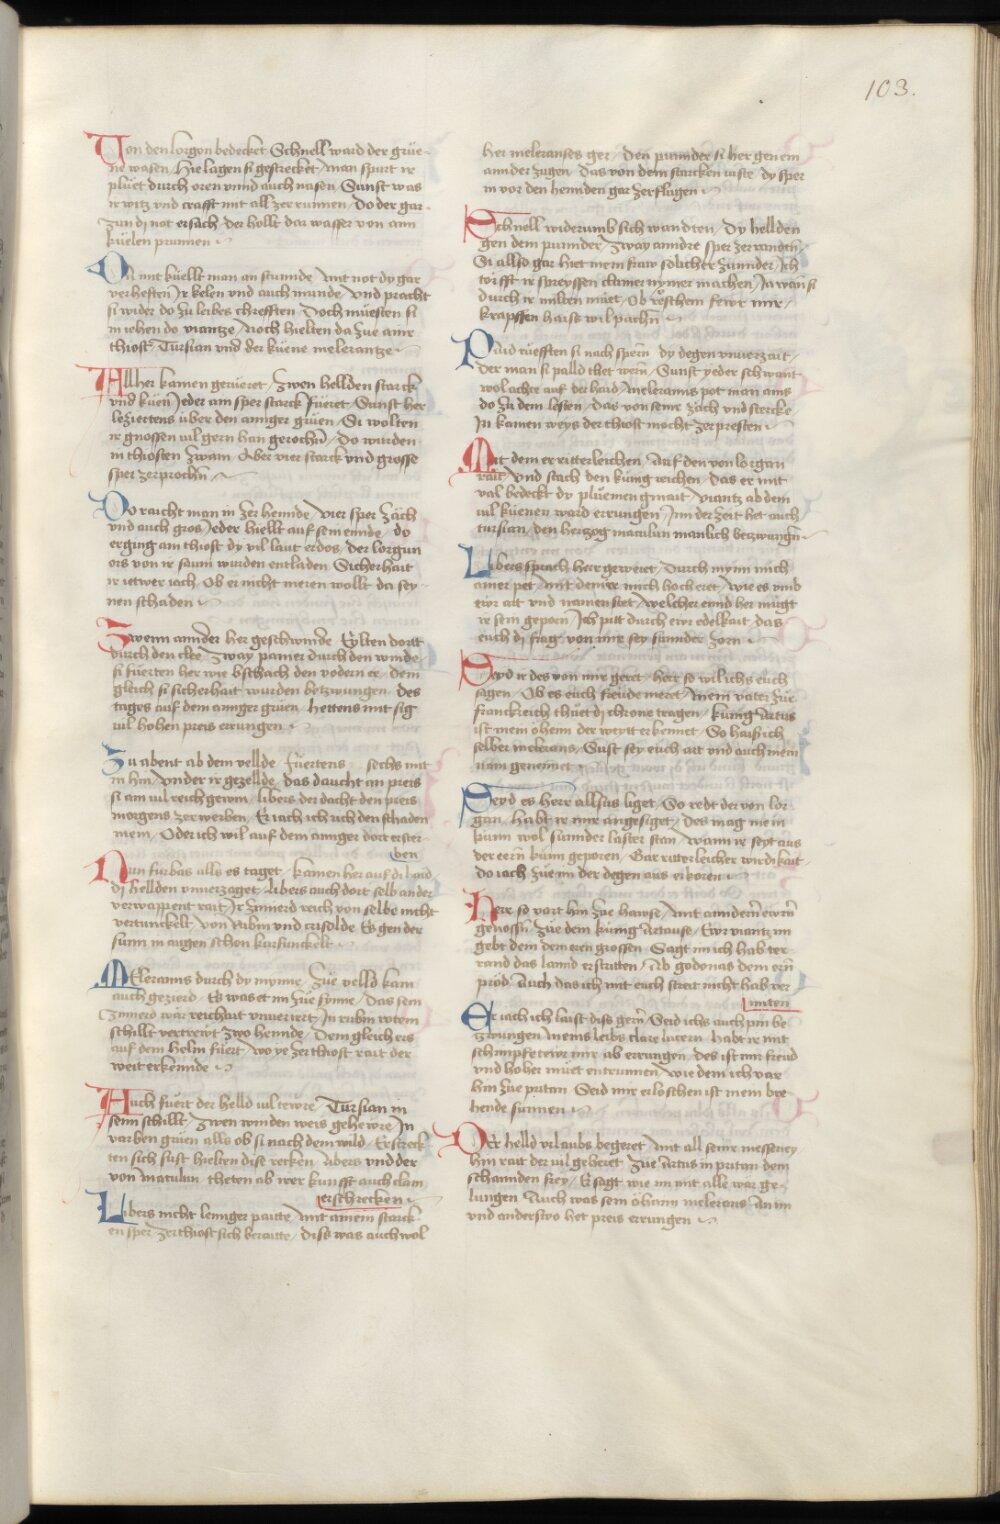 103.
Von den lorgon bedecket Schnell ward der grüe-
ne wasen / Hie lagen si gestrecket / Man spurt ir
pluet durch oren vnnd auch nasen / Sunst was
ir witz vnd crafft mit all zerrunnen / Do der gar-
zun di not ersach / der hollt dar wasser von ainn
küelen prunnen
Da mit küellt man an stunnde / Mit not dy gar
verheften / Ir kelen vnd auch munde / vnd pracht
si wider do zu leibes chrefften / Doch müesten si
in wehen do viantze / Noch hielten da zue ainr
thiost / Tursian vnd der küene melerantze
All her kamen gerueret / Zwen hellden starck
vnd kuen / Jeder ain sper starck fueret / Sunst her
leiziertens über den annger grüen / Si wolten
ir gnossen vil gern han gerochn / Do wurden
in thiosten zwain / Aber vier starck vnd grosse
sper zerprochn
Do raicht man in zer hennde / vier sper zäch
vnd auch gros / Jeder hiellt auf sein ennde / do
erging ain thiost dy vil laut erdos / der lorgun
ors von ir saum wurden entladen / Sicherhait
ir ietwer iach / Ob er nicht meren wollt da sey-
nen schaden
Zwenn annder her geschwinde / Eylten dortt
durch den clee / Zway panier durch den winde
si fuerten her wie bsthach den vodern ee / dem
gleich si sicherhait wurden betzwungen / des
tages auf dem annger grüen / hettens mit sig
vil hohen preis errungen
Zu abent ab dem vellde / fuertens sechs mit
in hin / vnder ir gezellde / das daucht an preis
si ain vil reich gewin / libers der dacht den preis
morgens zerwerben / Er iach ich rich den schaden
mein / Oder ich wil auf dem annger dort erster-
ben
Nun furbas alls es taget / kamen her auf di land
di hellden vnuerzaget / libers auch dort selb ander
verwappent rait / Ir zimierd reich von selbe nicht
vertunckelt / von Rubin vnd crisolde / Es gen der
sunn in augen schon karfunckelt
Meleranns durch dy mynne / Zue velld kam
auch geziert / Er was et in zue synne / Das sein
zimierd war reichait vnuerirrt / In rubin rotem
schillt vertreut zwo hennde / Dem gleich ers
auf dem helm fuert / wo ye zer thiost rait der
weit erkennde
Auch fuert der helld vil tewre / Tursian in
seim schillt / Zwen winden weis gehewre / In
varben grüen alls ob si nach dem wild / Er streck-
ten sich sust hielten dise recken / libers vnd der
von matulun / theten ab irer kunfft auch clain
erschrecken
Libers nicht lennger paitte / Mit ainem starck-
en sper / Zer thiost sich beraitte / Diss was auch wol
her meleranses ger / den punnder si her gen ein
annder zugen / das von dem starcken iuste / dy sper
in vor den hennden gar zerflugen
Schnell widerumb sich wandten / dy hellden
gen dem punnder / Zway anndre sper zerranntn
Si allso gar / Hiet mein fraw solicher zunnder / Ich
törfft ir spreyssen chainer nymer machen / Ja wan si
durch ir milten müet / Ob röschem fewr mir
krapffen haiss wil pachn
Paid rüefften si nach spern / dy degen vnuerzait
der man si palld thet wern / Sunst yeder schwant
wol achte auf der haid / Meleranns pot man ains
do zu dem lesten / das von seinr zäch vnd stercke
In kamen weys der thiost mocht zerpresten
Mit dem er ritterleichen / Auf den von lorgan
rait / vnd stach den kung wichen / das er mit
val bedeckt dy pluemen gmait / Viantz ab dem
vil küenen ward errungen / Inn der zeit het auch
tursian / den hertzog matulun manlich betzwungn
Libers sprach herr geweret / Durch mynn mich
ainer pet / mit der ir mich hoch eret / wie es vmb
ewr art vnd namen stet / welcher ennd her mügt
ir sein geporn / Ich pitt durch ewr edelkait / das
euch di frag von mir sey sunnder zorn
Seyd ir des von mir geret / herr so wil ichs euch
sagen / Ob es euch freude meret / Mein vater zue
franckreich thuet di chrone tragen / kunig Artus
ist mein öheim der weytt erkennet / So haiss ich
selber melerans / Sust sey euch art vnd auch mein
nam genennet
Seyd es herr allsus liget / So redt der von lor-
gan / Habt ir mir angesiget / Des mag mein
kunn wol sunnder laster stan / wann ir seyt aus
der eern kunn geporen / Gar ritterleicher wirdikait
do iach zue im der degen aus erkoren
Herr so vart hin zue hawse / Mit anndern ewrn
genossn / Zue dem kunig Artause / Ewr viantz im
gebt dem dem eren grossen / Sagt im ich hab ter-
rand das lannd erstritten / Ab godonas dem ern
prod / Auch das ich mit euch streit nicht hab ver-
miten
Er iach ich laist diss gern / Seid ichs auch pin be-
zwungen / Meins leibs clare lucern / habt ir mit
schimpfe tewr mir ab errungen / des ist mir freud
vnd hoher müet entrunnen / wie dem ich var
hin zue pritan / Seid mir erloschen ist mein bre-
hende sunnen
Der helld vrlaubs begeret / Mit all seinr messeney
hin rait der vil geheret / Zue Artus in pritan dem
schannden frey / Er sagt wie im mit alle war ge-
lungen / Auch was sein öhaim melerans / An im
vnd anderswo het preis errungen